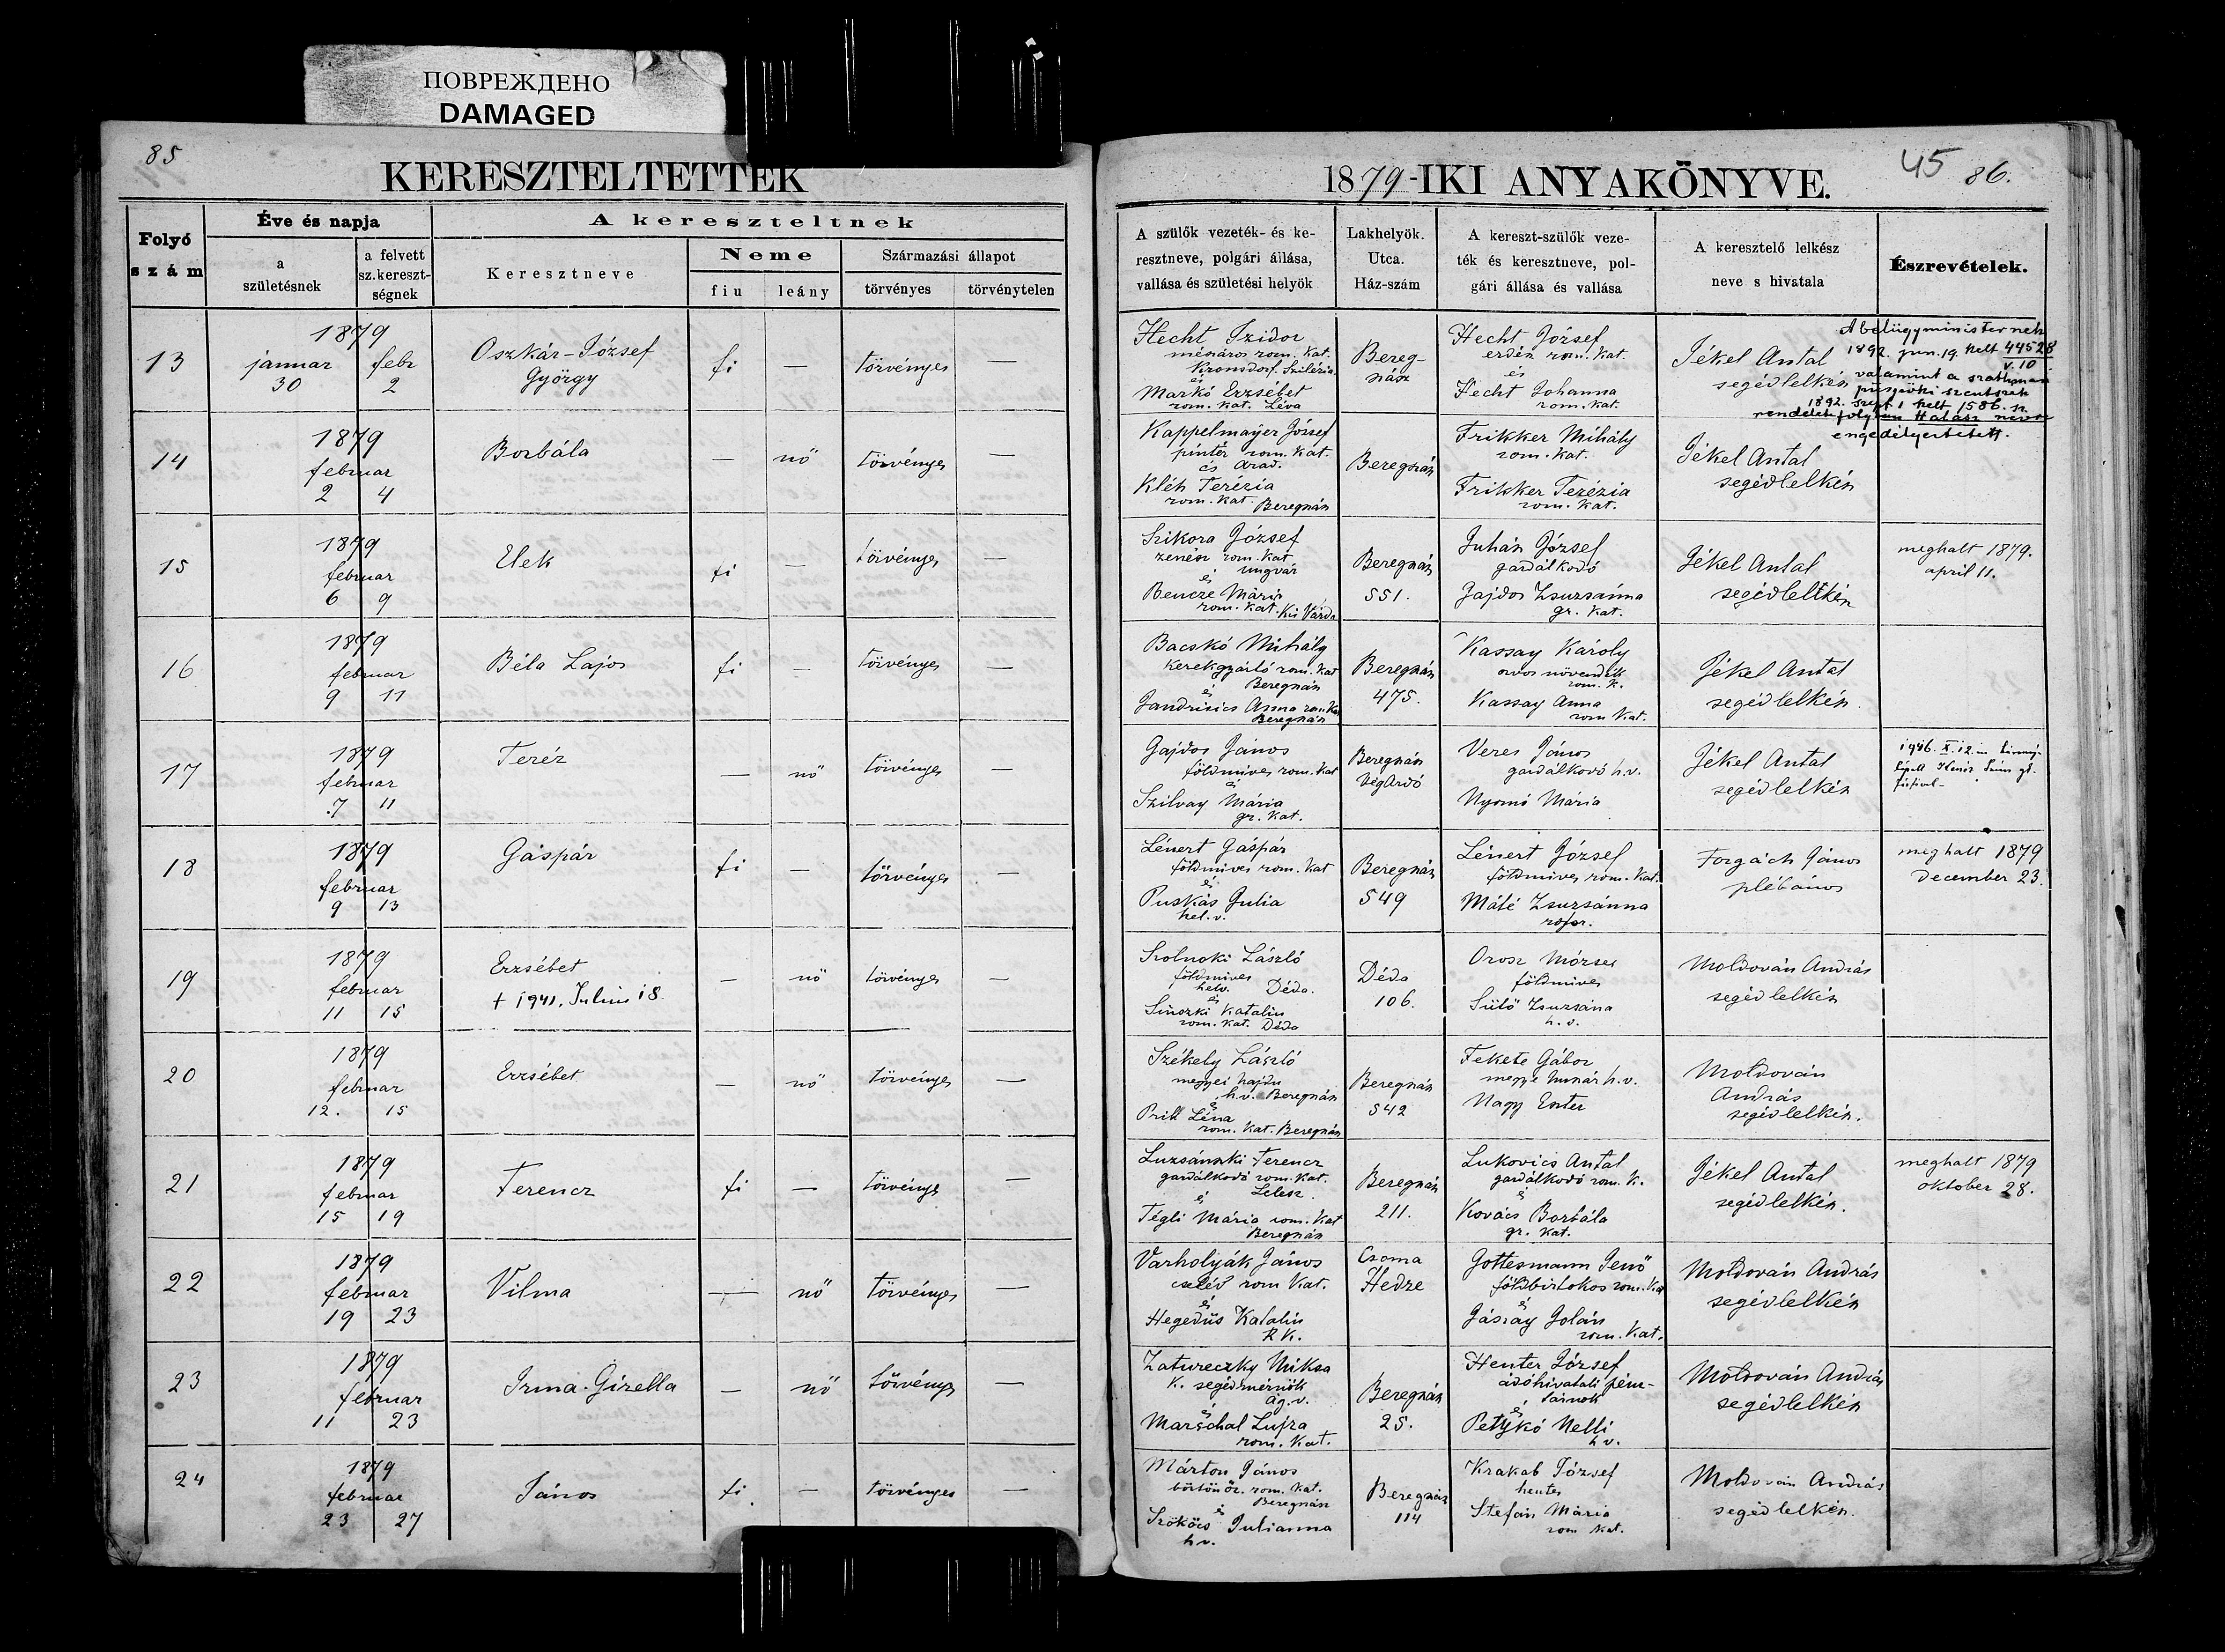 ПОВРЕЖДЕНО
DAMAGED
85
KERESZTELTETTEK
Folyó
szám
Éve és napja
a
születésnek
a felvett
sz.kereszt-
ségnek
A kereszteltnek
Keresztneve
Neme
fiu
leány
Származási állapot
törvényes
törvénytelen
1879-IKI ANYAKÖNYVE.
45
86.
A szülők vezeték- és ke-
resztneve, polgári állása,
vallása és születési helyök
Lakhelyök.
Utca.
Ház-szám
A kereszt-szülők veze-
ték és keresztneve, pol-
gári állása és vallása
A keresztelő lelkész
neve s hivatala
Észrevételek.
13
1879
januar febr
30 2
Oszkár-József
György
fi
—
törvényes
—
Hecht Izidor
mészáros rom. kat.
Kronsdorf. Szilézia
és
Markó Erzsébet
rom. kat. Léva
Bereg-
szász
Hecht József
erdész rom. kat.
és
Hecht Johanna
rom. kat.
Jékel Antal
segédlelkész
A belügyministernek
1892. jun. 19. kelt 44528
v. 10
valamint a szathmári
püspöki szentszék
1892. szept 1 kelt 1586. sz.
rendelete folytán Halász névre
engedélyeztetett.
14
1879
februar
2 4
Borbála
—
nő
törvényes
—
Kappelmayer József
pintér rom. kat.
és Arad.
Kléh Terézia
rom. kat. Beregszász
Beregszász
Frikker Mihály
rom. kat.
Frikker Terézia
rom. kat.
Jékel Antal
segédlelkész
15
1879
februar
6 9
Elek
fi
—
törvényes
—
Szikora József
zenész rom. kat
ungvár
és
Bencze Mária
rom. kat. Kis Várda
Beregszász
551.
Juhász József
gazdálkodó
Gajdos Zsuzsánna
gr. kat.
Jékel Antal
segédlelkész
meghalt 1879.
april 11.
16
1879
februar
9 11
Béla Lajos
fi
—
törvényes
—
Bacskó Mihály
kerékgyártó rom. kat
Beregszász
és
Gandrisics Anna rom. kat
Beregszász
Beregszász
475.
Kassay Károly
orvos növendék
rom. k.
Kassay Anna
rom kat.
Jékel Antal
segédlelkész.
17
1879
februar
7 11
Teréz
—
nő
törvényes
—
Gajdos János
földmíves rom. kat
és
Szilvay Mária
gr. kat.
Beregszász
Végardó
Veres János
gazdálkodó h.v.
Nyomó Mária
Jékel Antal
segédlelkész
1946. X. 12.
18
1879
februar
9 13
Gáspár
fi
—
törvényes
—
Lénert Gáspár
földmíves rom. kat
és
Puskás Julia
hel. v.
Beregszász
549
Lénert József
földmíves rom. kat.
Máté Zsuzsánna
refor.
Forgách János
plébános
meghalt 1879
December 23.
19
1879
februar
11 15
Erzsébet
+ 1941. Julius 18.
—
nő
törvényes
—
Szolnoki László
földmíves
helv. Déda.
és
Sinszki Katalin
rom. kat. Déda
Déda
106.
Orosz Mózses
földmíves
Sütő Zsuzsána
h. v.
Moldován András
segédlelkész
20
1879
februar
12. 15
Erzsébet
—
nő
törvényes
—
Székely László
megyei hajdu
h.v. Beregszász
és
Prill Léna
rom. kat. Beregszász
Beregszász
542
Fekete Gábor
megye huszár h.v.
Nagy Eszter
Moldován
András
segédlelkész.
21
1879
februar
15 19
Ferencz
fi
—
törvényes
—
Luzsánszki Ferencz
gazdálkodó rom. kat.
Lelesz
és
Tégli Mária rom. kat
Beregszász
Beregszász
211.
Lukovics Antal
gazdálkodó rom. k.
és
Kovács Borbála
gr. kat.
Jékel Antal
segédlelkész.
meghalt 1879
oktober 28.
22
1879
februar
19 23
Vilma
—
nő
törvényes
—
Varholyák János
cseléd rom kat.
és
Hegedüs Katalin
R K.
Csoma
Hedze
Gottesmann Jenő
földbirtokos rom. ka
és
Gászay Jolán
rom. kat.
Moldován András
segédlelkész
23
1879
februar
11 23
Irma-Gizella
—
nő
törvényes
—
Zatureczky Miksa
k. segédmérnök
ág. v.
és
Marschal Lujza
rom. kat.
Beregszász
25.
Henter József
adóhivatali pénz-
tárnok
és
Petykó Nelli
h v.
Moldován András
segédlelkész
24
1879
februar
23 27
János
fi.
—
törvényes
—
Márton János
börtönőr. rom. kat.
Beregszász
és
Szőkőcs Julianna
h v.
Beregszász
114
Krakab József
hentes
Stefán Mária
rom kat.
Moldován András
segédlelkész.